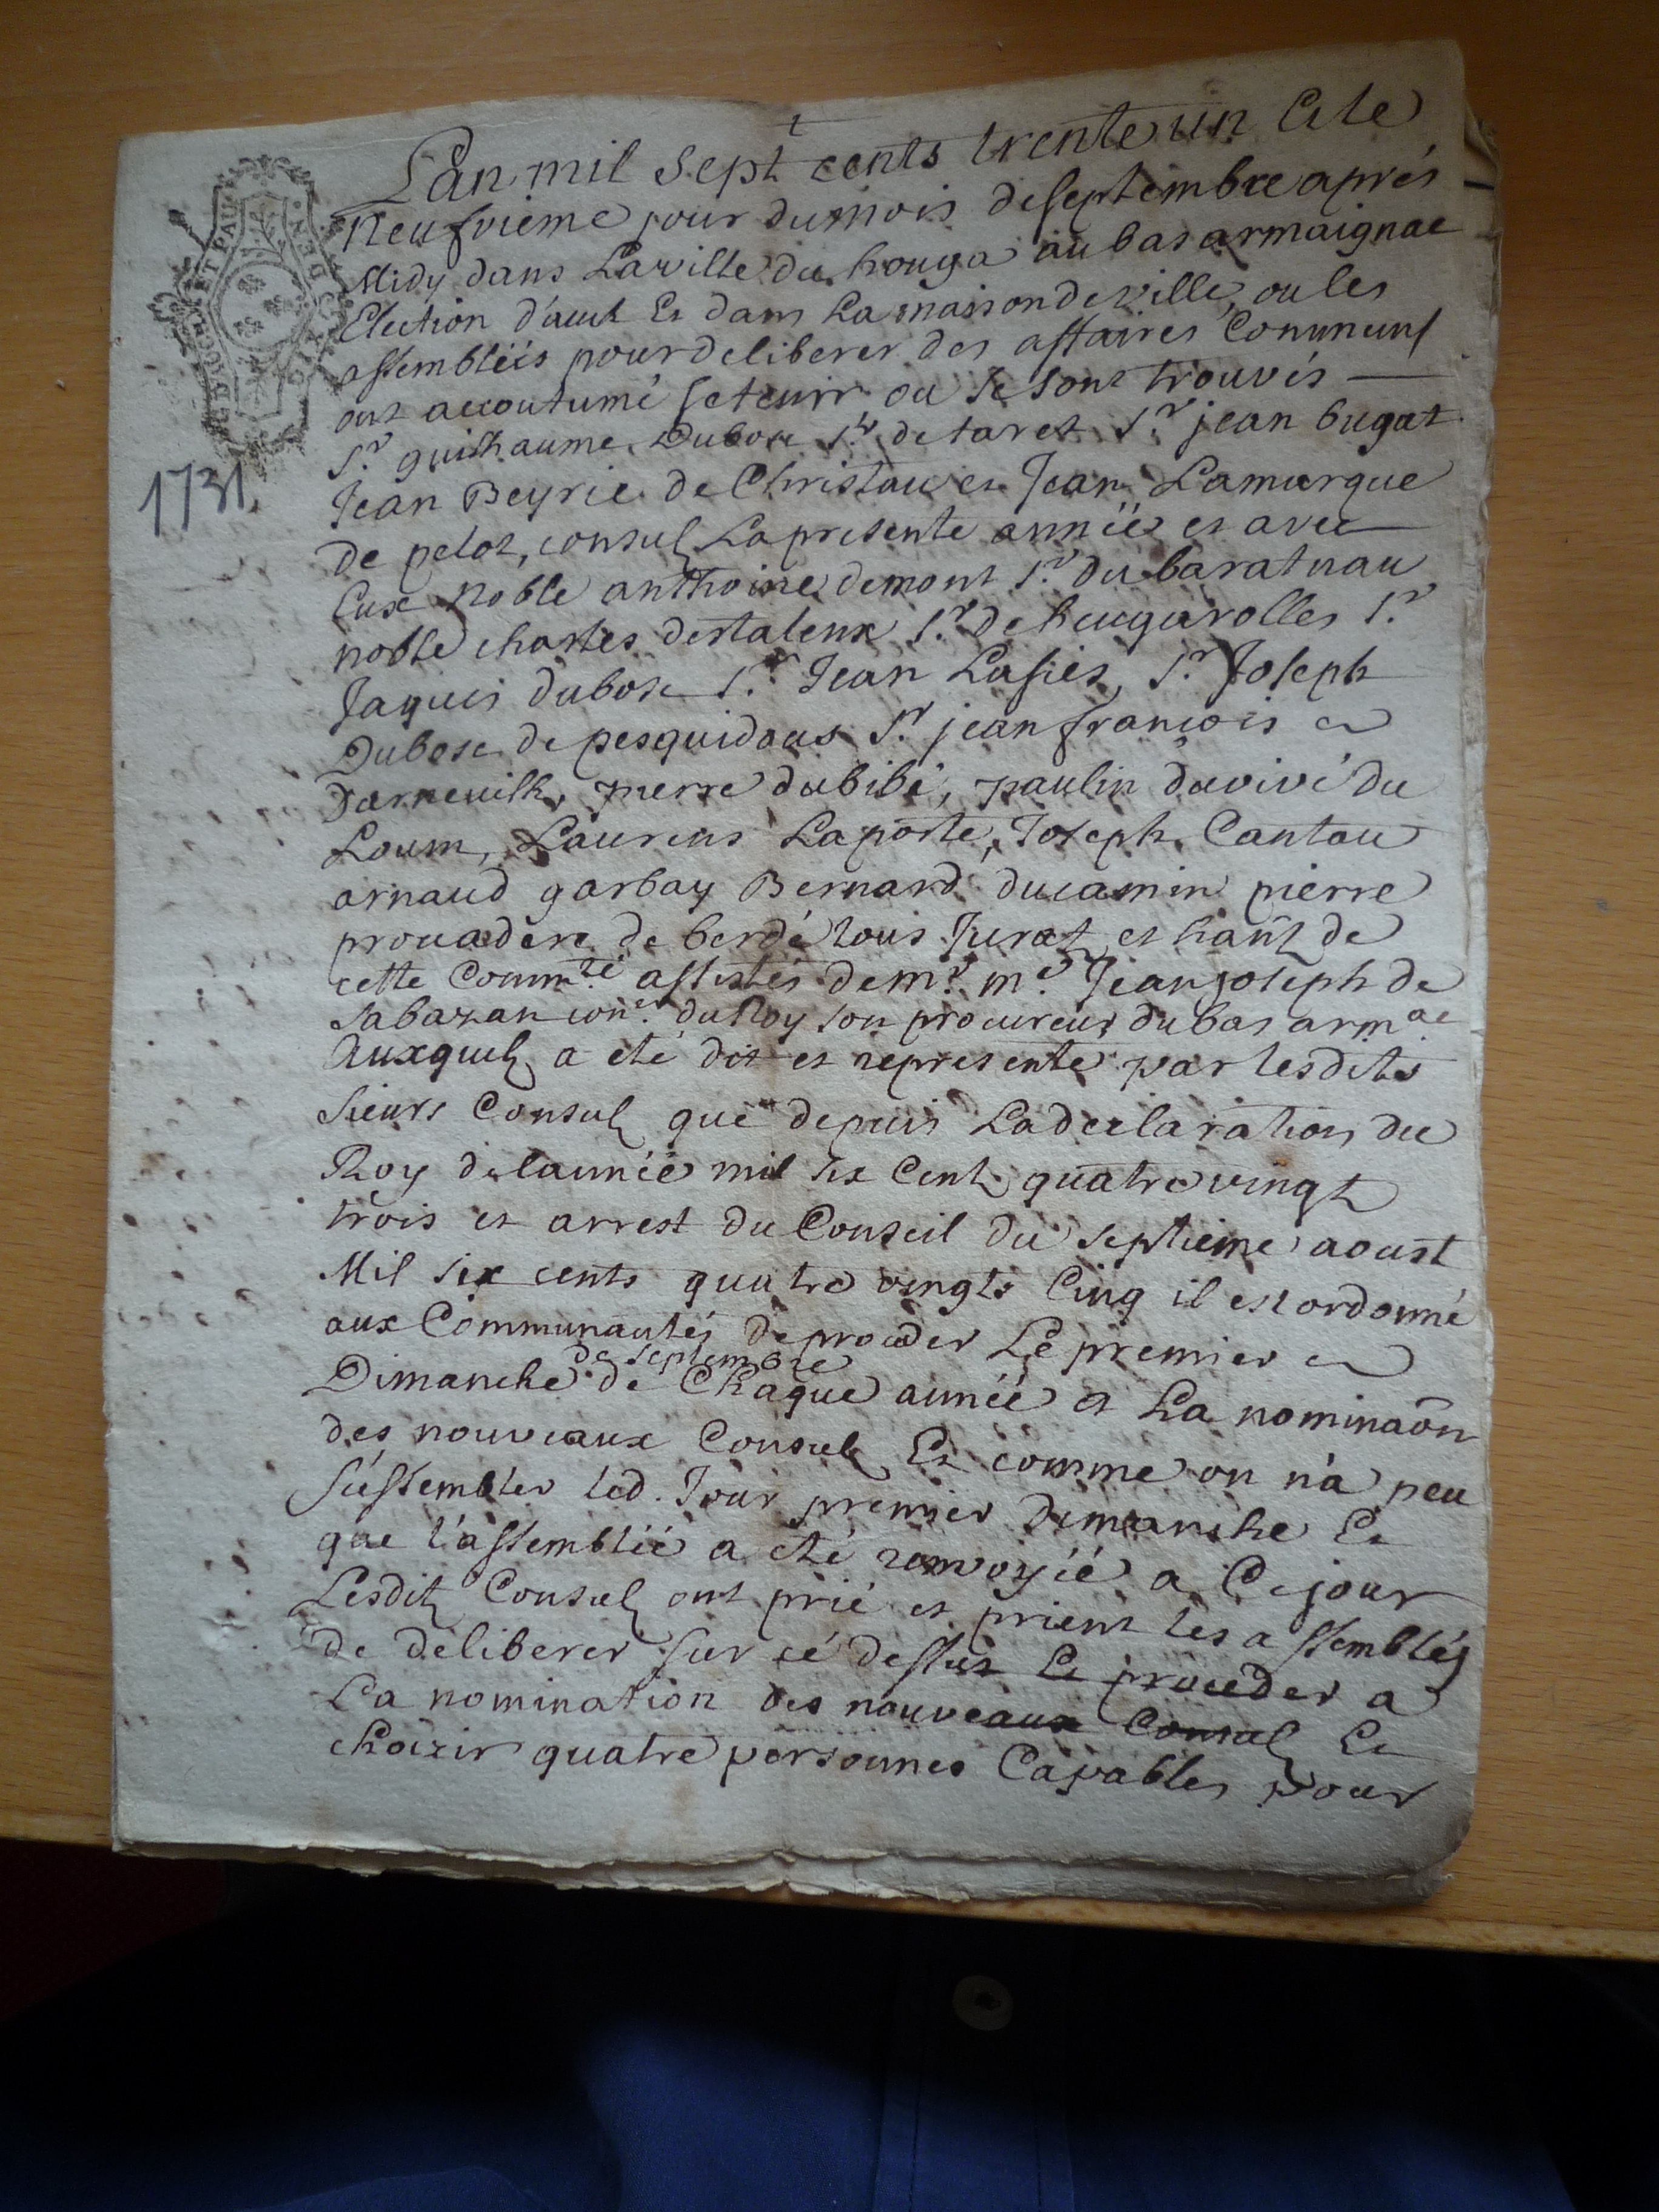 Lan mil sept cents trente un Et le
neufvieme jour du mois de septembre aprés
Midy dans La ville du houga au bas armaignac
Election d'auch Et dans La maison de ville, ou les
assembléés pour deliberer des affaires Communes
ont accoutumé se tenir ou se sont trouvés
1731
Sr. guilhaume Dubosc Sr. de taret Sr. jean bugat
Jean Beyrie de Christau et Jean Lamarque
de pelot, consuls La presente année et avec
Eux noble anthoine demont Sr. du baratnau
noble charles destalenx Sr. de heugarolles Sr.
Jaques dubosc Sr. Jean Lasies, Sr. Joseph
Dubosc de pesquidous Sr. jean francois
Darneuilh, pierre dubibé, paulin duvivé du
Loum, Laurens Laporte, Joseph Cantau
arnaud garbay Bernard ducamin pierre
prouadere de berdé tous Jurats et hants de
cette Commté. assistés de mr. me. Jean joseph de
Sabazan coner. du Roy son procureur du bas armac
Auxquels a été dit et representé par lesdits
sieurs Consuls que depuis La declaration du
Roy de lannée mil six Cents quatre vingt
trois et arrest du Conseil du septieme aoust
Mil six cents quatre vingts Cinq il est ordonné
aux Communautés de proceder Le premier
de septembre
Dimanche de Chaque année a La nominaon
des nouveaux Consuls Et comme on n'a peu
s'assembler led. Jour premier Dimanche Et
que l'assemblée a été renvoyéé a Ce jour
Lesdits Consuls ont prié et prient les assemblés
de deliberer sur cé dessus Et proceder a
La nomination des nouveaux Consuls Et
choizir quatre personnes Capables pour